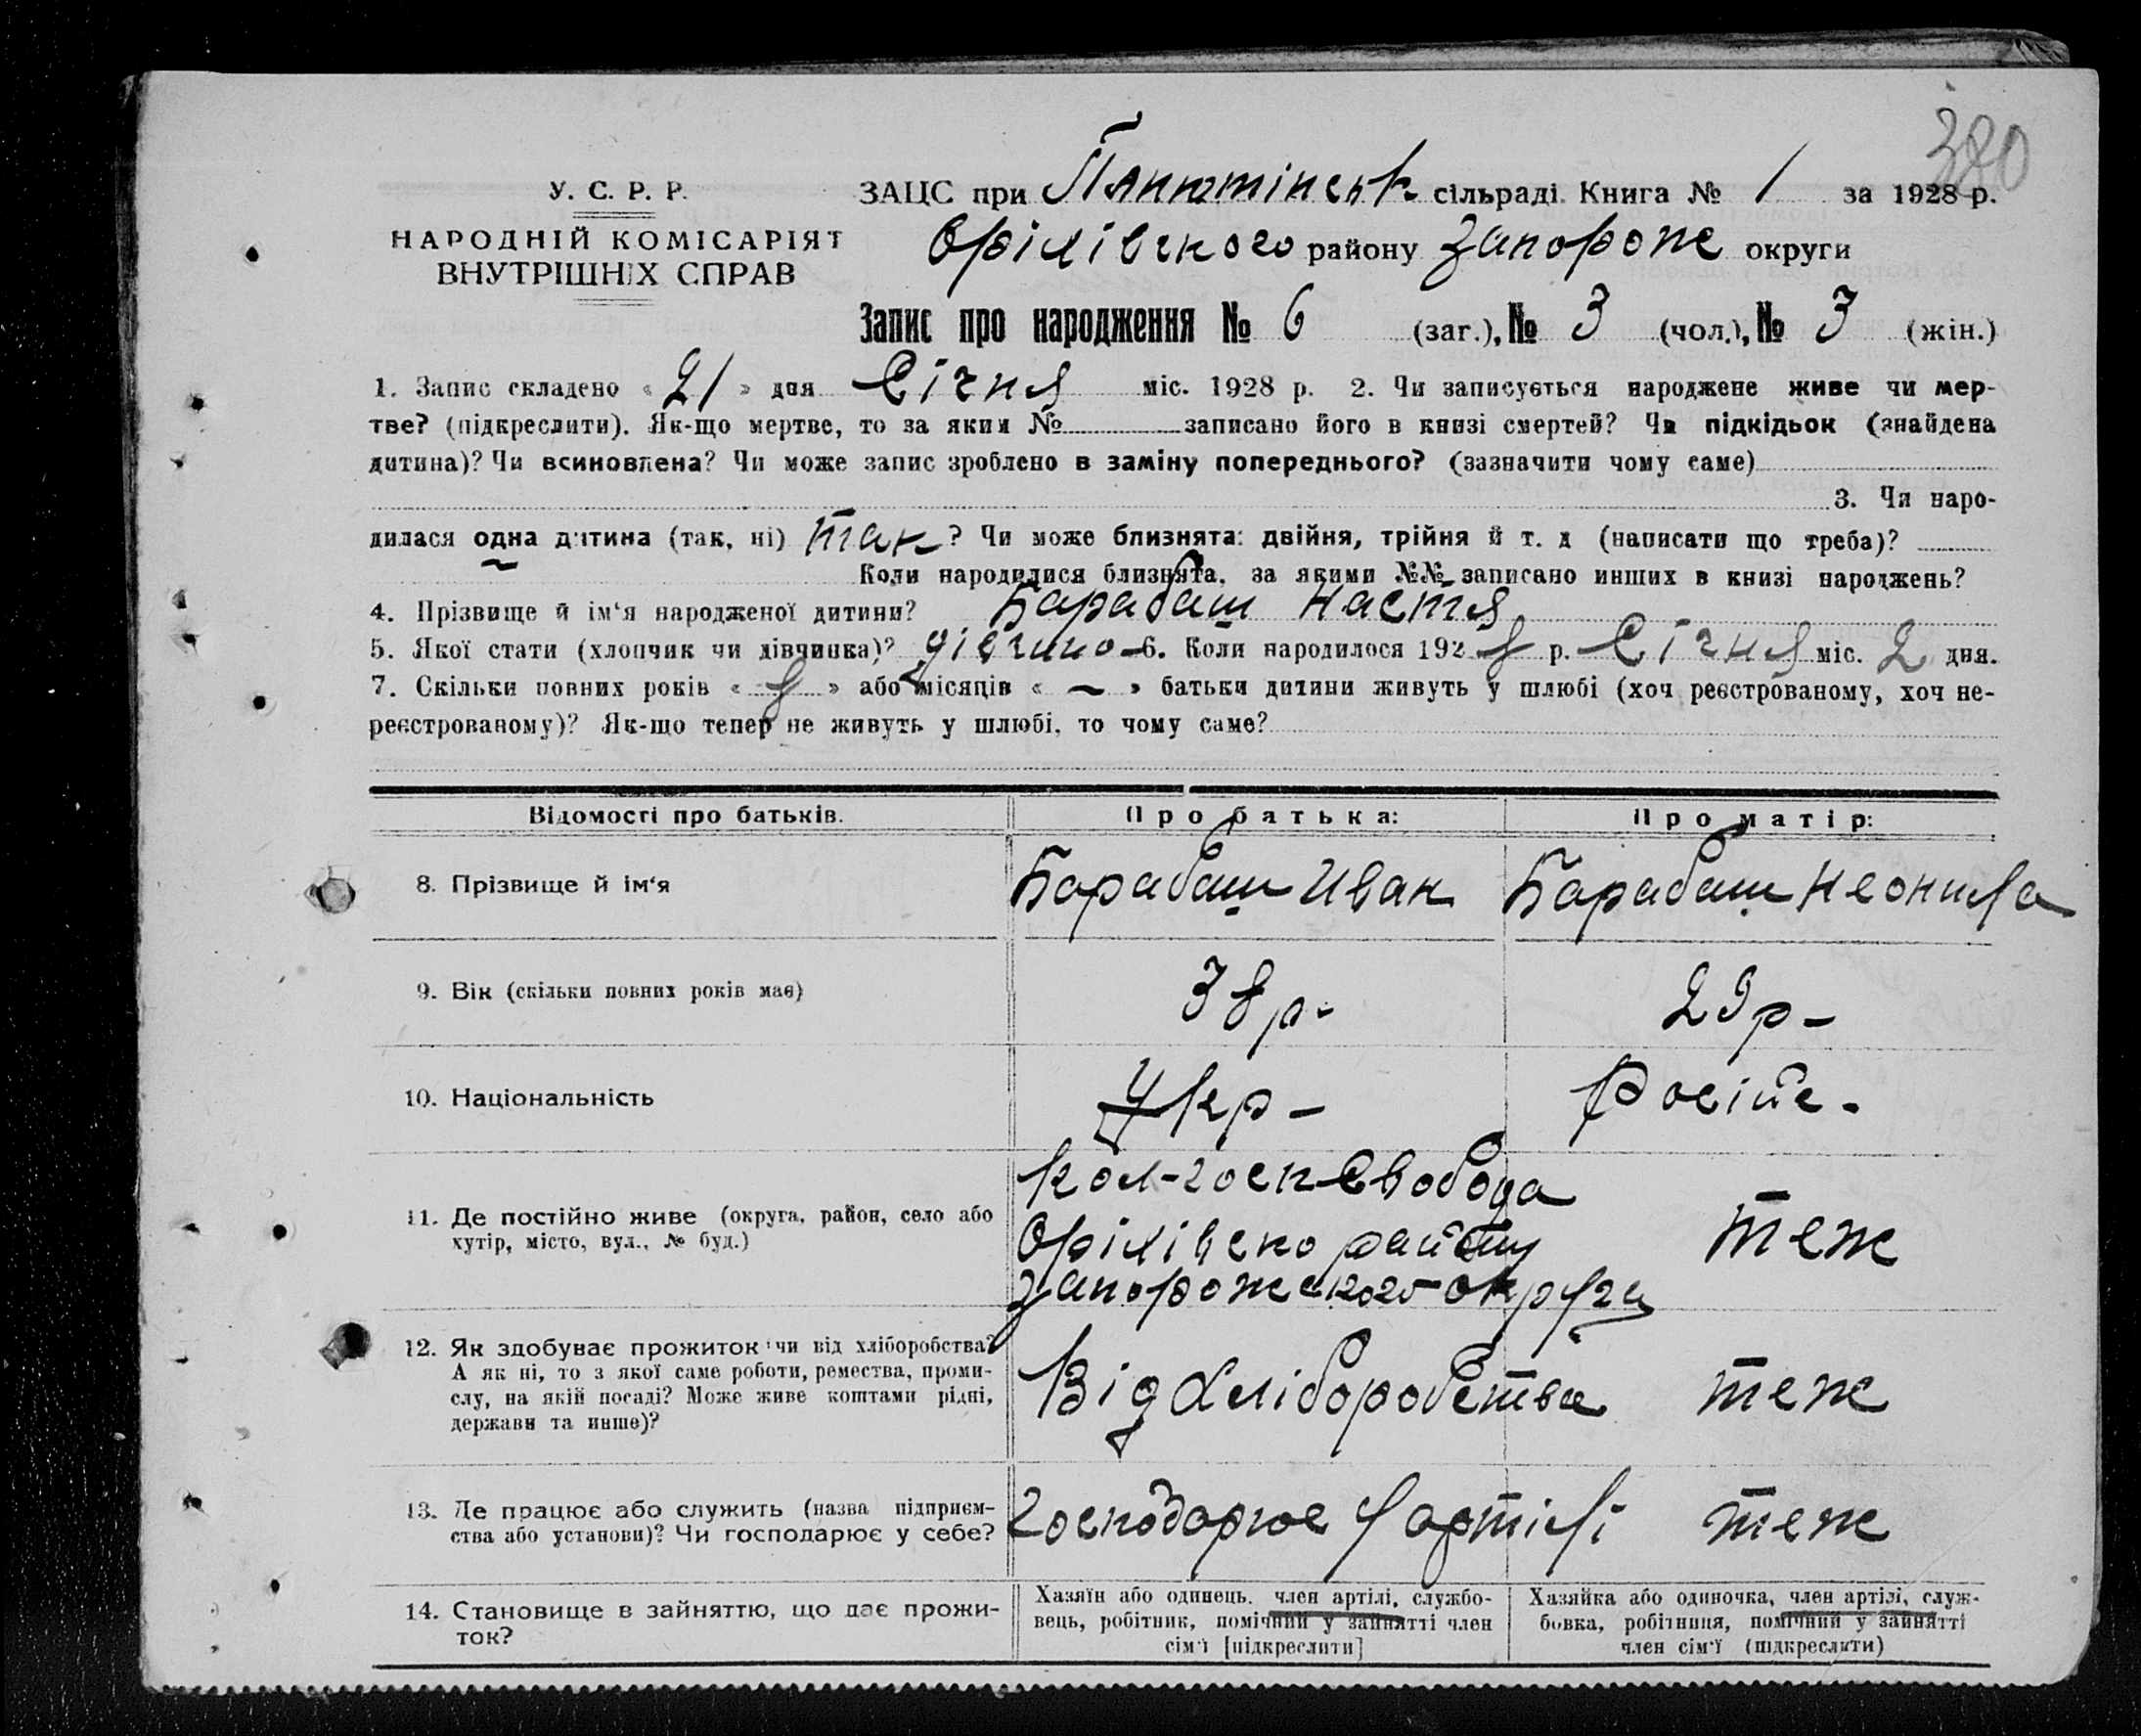 380
У. С. Р. Р.
НАРОДНІЙ КОМІСАРІЯТ
ВНУТРІШНІХ СПРАВ
ЗАЦС при Панютінськ сільраді. Книга № 1 за 1928 р.
Орілівського району Запорож округи
Запис про народження № 6 (заг.), № 3 (чол.), № 3 (жін.)
1. Запис складено « 21 » дня Січня міс. 1928 р. 2. Чи записується народжене живе чи мер-
тве? (підкреслити). Як-що мертве, то за яким № записано його в книзі смертей? Чи підкідьок (знайдена
дитина)? Чи всиновлена? Чи може запис зроблено в заміну попереднього? (зазначити чому саме)
3. Чи наро-
дилася одна дитина (так, ні) так ? Чи може близнята: двійня, трійня й т. д (написати що треба)?
Коли народилися близнята, за якими №№ записано инших в книзі народжень?
4. Прізвище й ім‘я народженої дитини? Барабаш Настя
5. Якої стати (хлопчик чи дівчинка)? дівчино 6. Коли народилося 192 8 р. Січня міс. 2 дня.
7. Скільки повних років « 8 » або місяців « — » батьки дитини живуть у шлюбі (хоч реєстрованому, хоч не-
реєстрованому)? Як-що тепер не живуть у шлюбі, то чому саме?
Відомості про батьків. Про батька: Про матір:
8. Прізвище й ім‘я Барабаш Иван Барабаш Неонила
9. Вік (скільки повних років має) 38 р- 29 р-
10. Національність Укр- Росій.
11. Де постійно живе (округа, район, село або
хутір, місто, вул., № буд.)
Кол-госп Свобода
Орілівско району теж
Запорожского округа
12. Як здобуває прожиток чи від хліборобства?
А як ні, то з якої саме роботи, ремества, проми-
слу, на якій посаді? Може живе коштами рідні,
держави та инше)?
Від Хліборобства теж
13. Де працює або служить (назва підприєм-
ства або установи)? Чи господарює у себе?
Господорює у артілі теж
14. Становище в зайняттю, що дає прожи-
ток?
Хазяїн або одинець. член артілі, службо-
вець, робітник, помічний у зайнятті член
сім‘ї [підкреслити]
Хазяйка або одиночка, член артілі, служ-
бовка, робітниця, помічний у зайнятті
член сім‘ї (підкреслити)